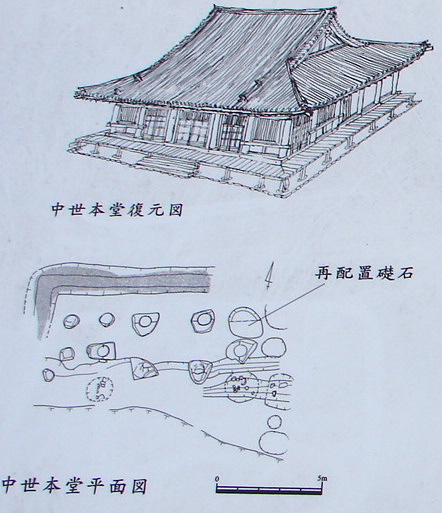 中世本堂復元図
再配置礎石
中世本堂平面図
0
5m